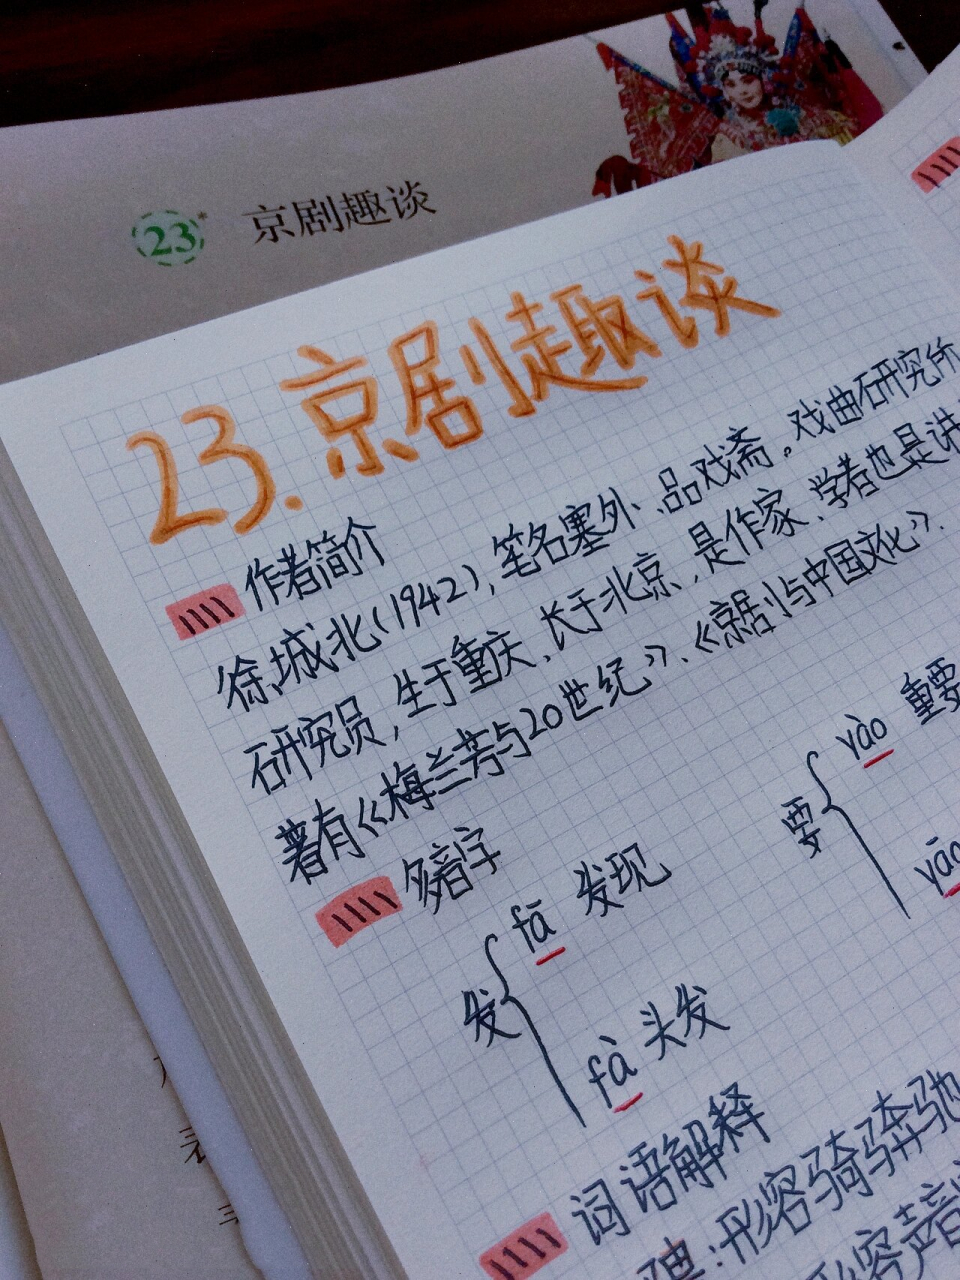 23 京剧趣谈
23.京剧趣谈
作者简介
徐城北(1942),笔名塞外、品戏斋。戏曲研究所
研究员,生于重庆、长于北京,是作家、学者也是讲
著有《梅兰芳与20世纪》、《京剧与中国文化》.
多音字
发 fā 发现
fà 头发
要 yào 重要
yāo
词语解释
骋:形容骑骑奔驰
形容声音